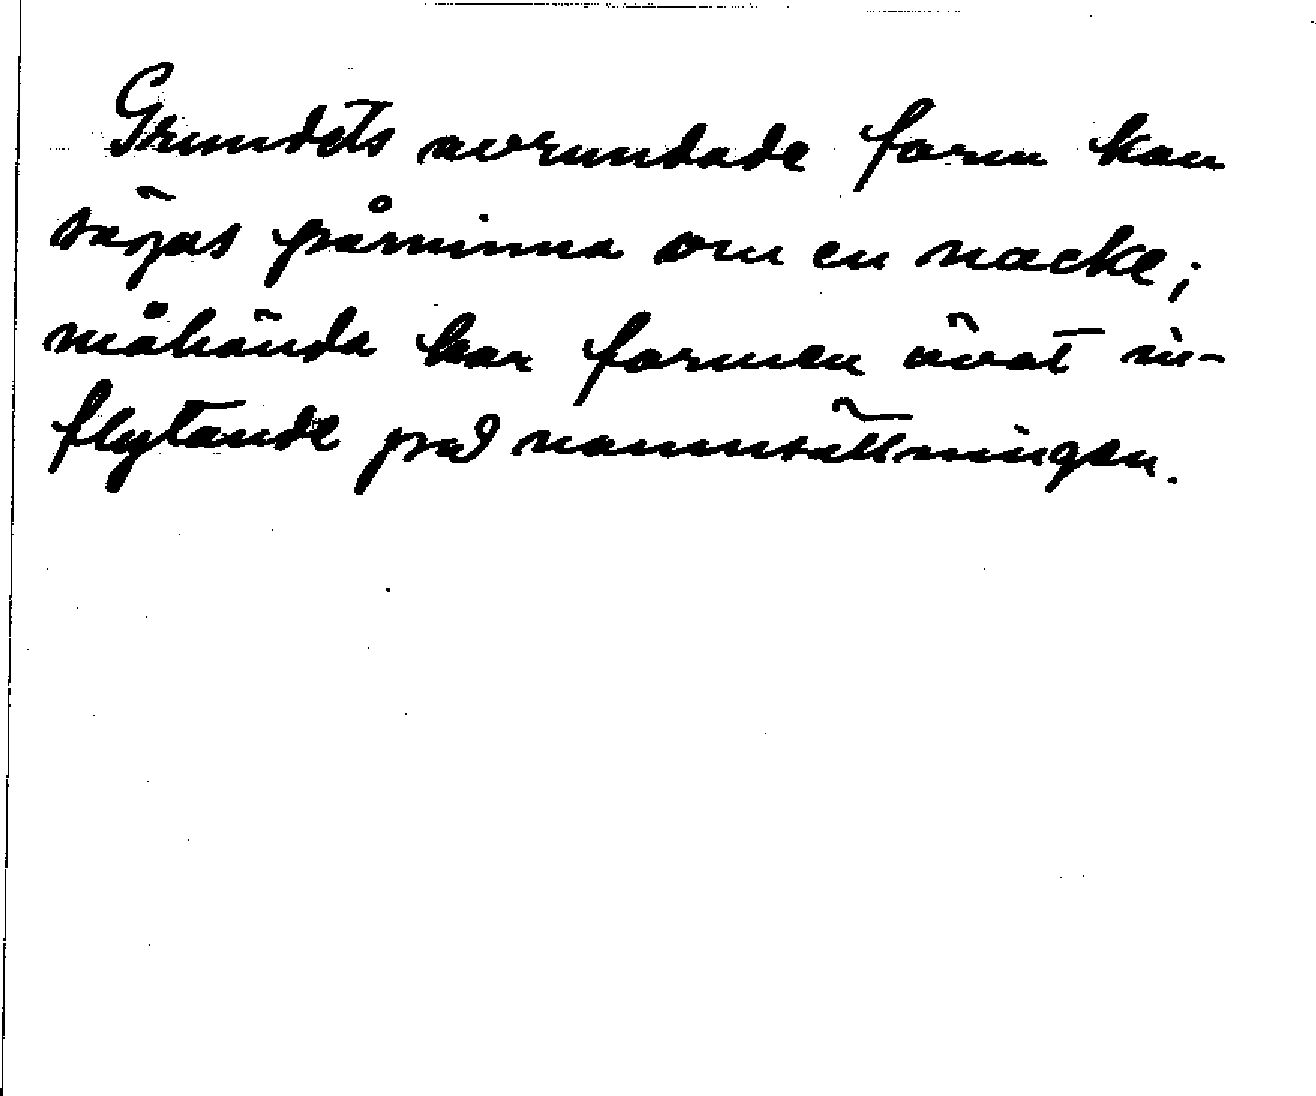 Grundets avrundade form kan
sägas påminna om en nacke;
måhända har formen övat in-
flytande på namnsättningen.